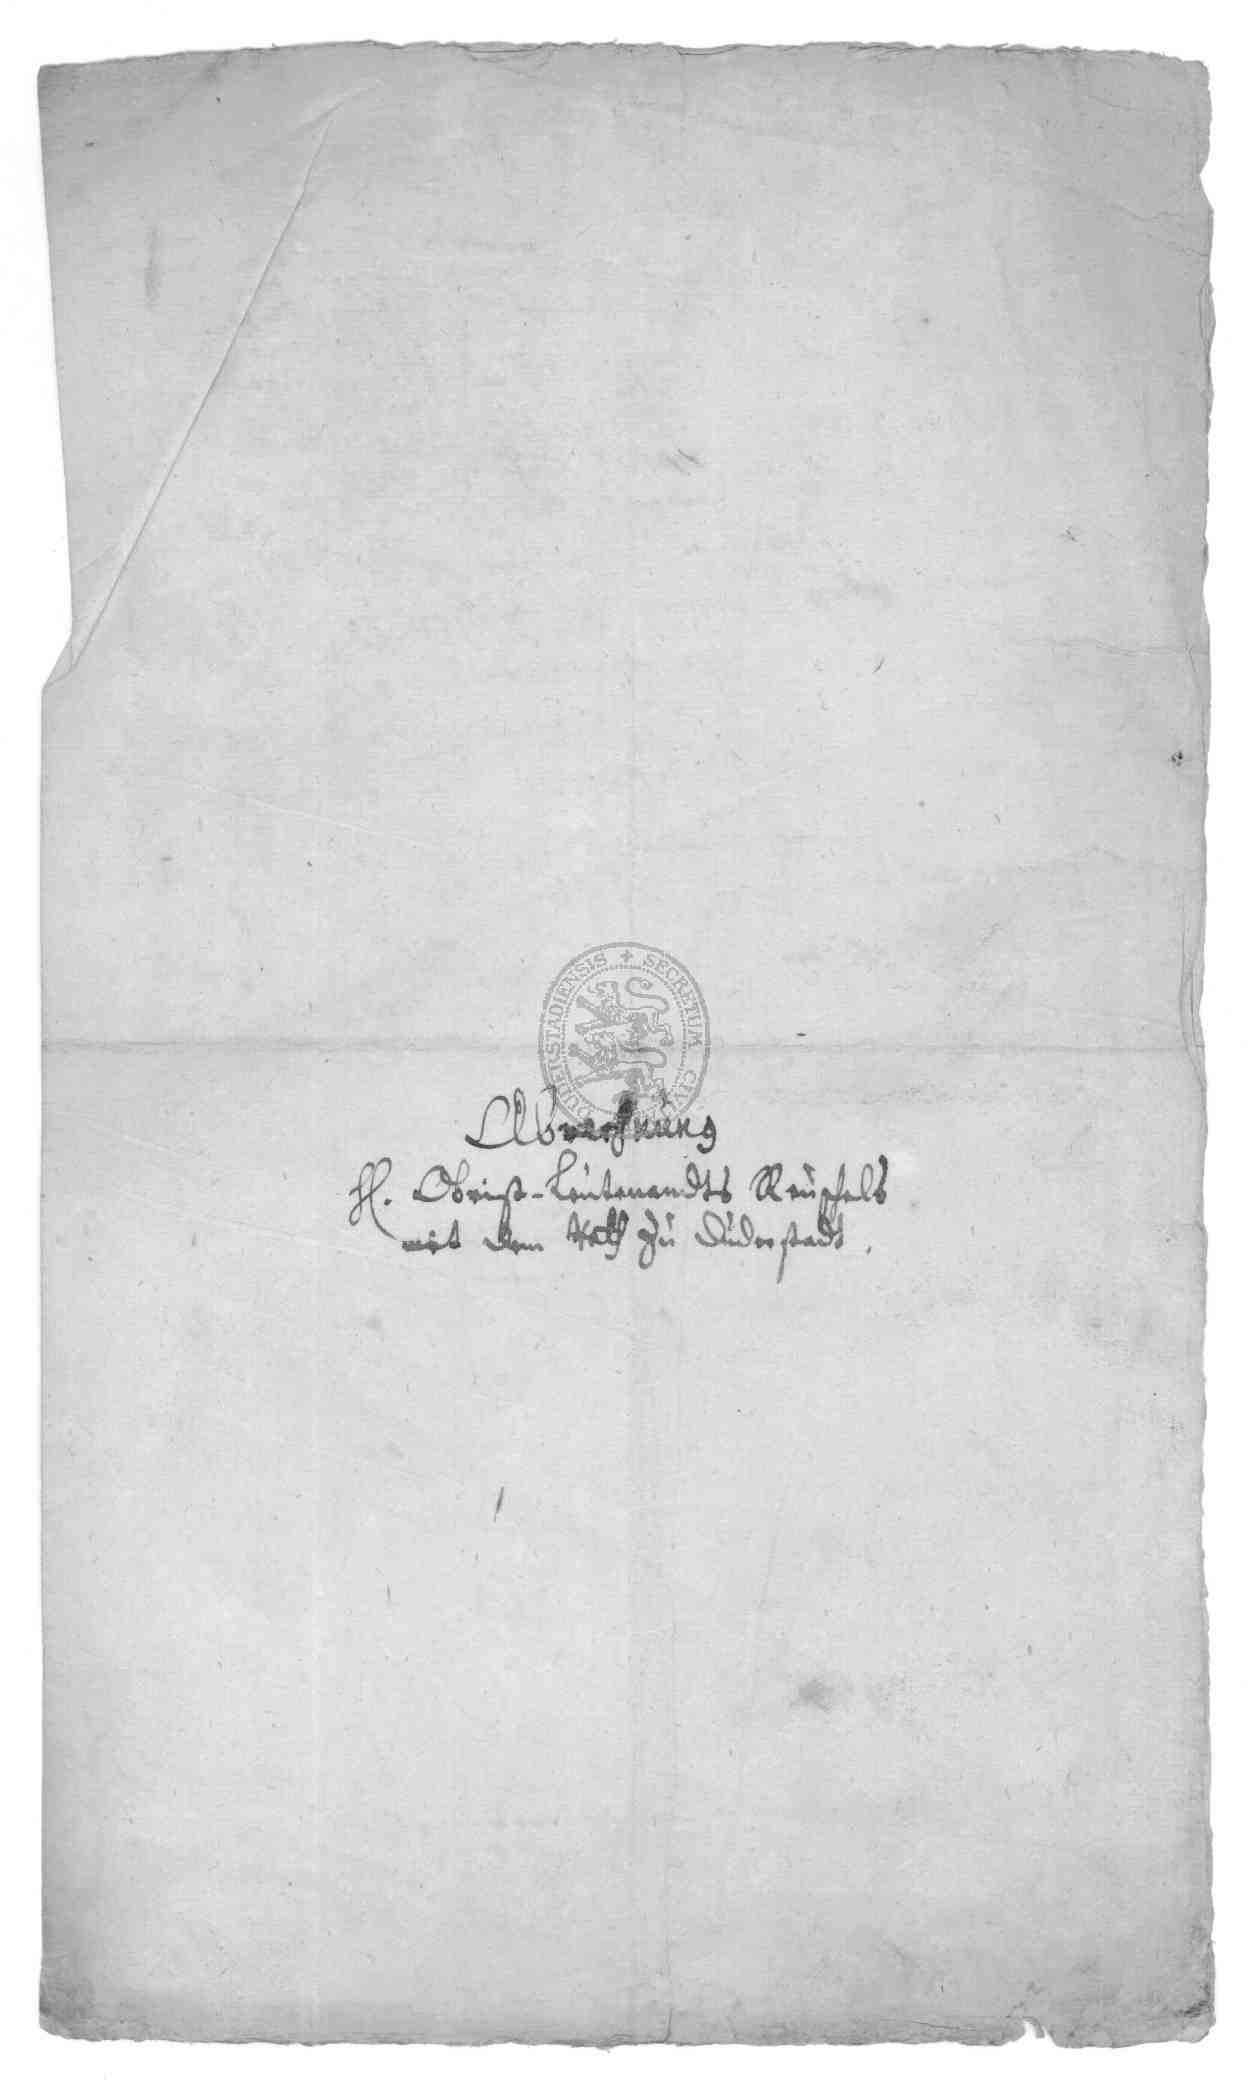 DUDERSTADIENSIS + SECRETUM CIV
Abrechnung
H. Obrist-Leutenandts
mit dem Rath zu Duderstadt.